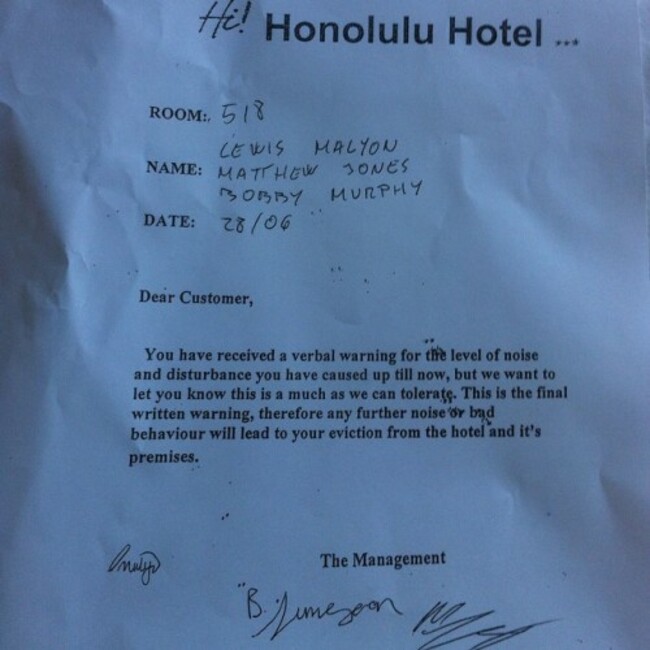 Hi! Honolulu Hotel ...
ROOM: 518
LEWIS MALYON
NAME: MATTHEW JONES
BOBBY MURPHY
DATE: 28/06
Dear Customer,
You have received a verbal warning for the level of noise
and disturbance you have caused up till now, but we want to
let you know this is a much as we can tolerate. This is the final
written warning, therefore any further noise or bad
behaviour will lead to your eviction from the hotel and it's
premises.
The Management